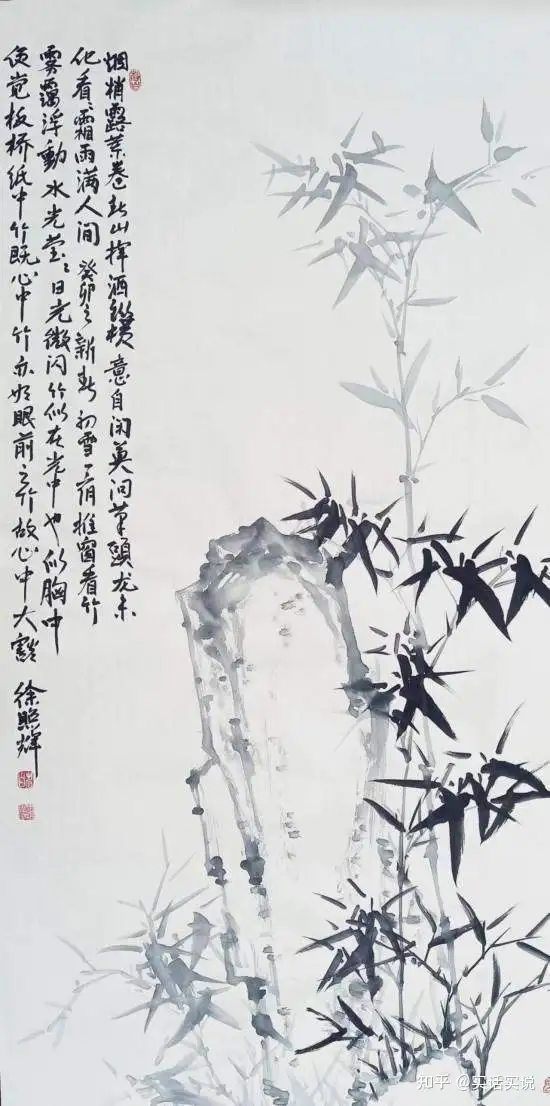 烟梢露卷山挥洒纵横意自闲莫问笔頭龙未
化看〻霜雨满人间 癸卯之新春初雪宵推窗看竹
雾靄浮動水光莹〻日光微闪竹似在中也似胸中
便觉板桥纸中竹既心中竹亦如眼前之竹故心中大豁
徐照辉
知乎 @实话实说